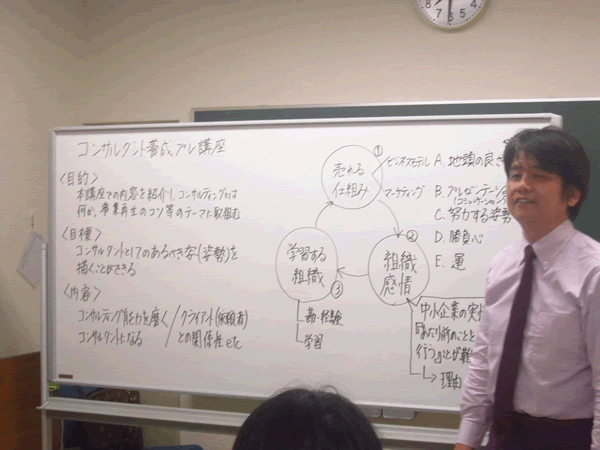 コンサルタント養成プレ講座
<目的>
本講座での内容を紹介し、コンサルティングとは
何か、事業再生のコツ等のテーマに取組む
<目標>
コンサルタントとしてのあるべき姿(姿勢)を
描くことができる
<内容>
コンサルティング能力を磨く
コンサルタントになる
クライアント(依頼者)
との関係性 etc
①
売れる
仕組み
ビジネスモデル
マーケティング
②
組織
感情
学習する
組織
③
勘・経験
学習
A. 地頭の良さ
B. プレゼンテーション
(コミュニケーション)
C. 努力する姿勢
D. 勝負心
E. 運
中小企業の実
当たり前のことを
行うことが難
理由